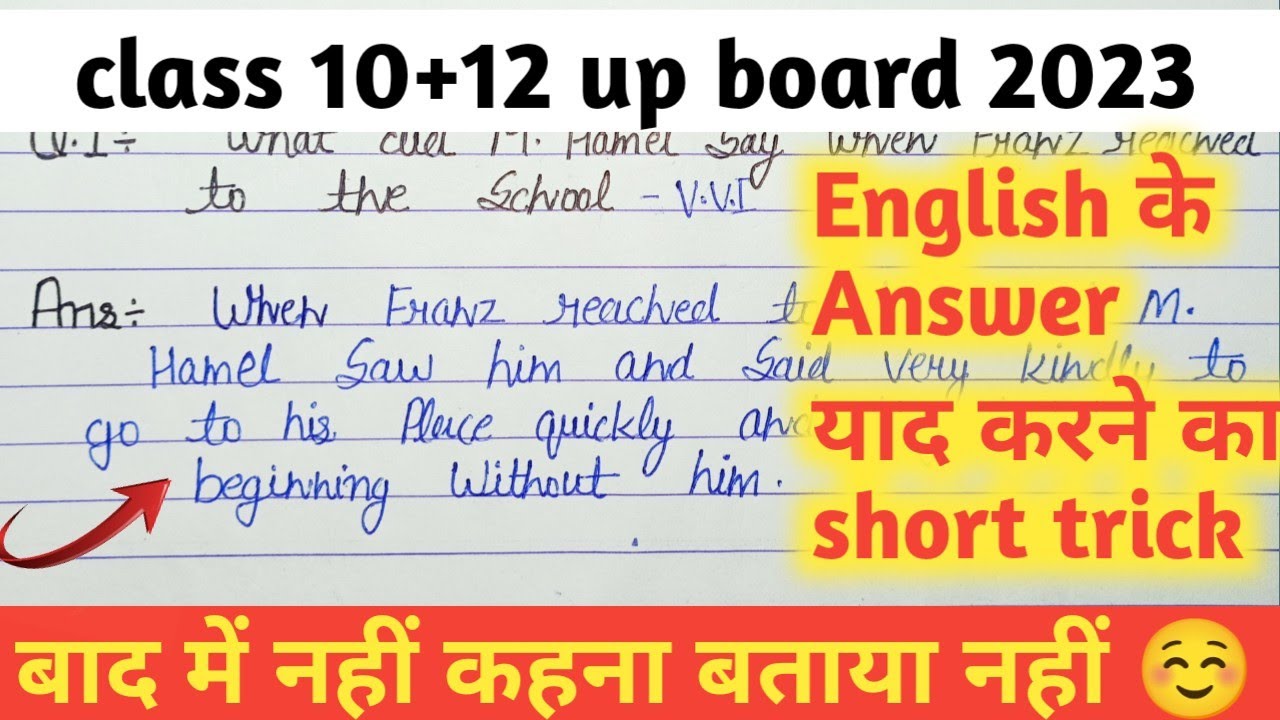 class 10+12 up board 2023
Q.1÷ What did M. Hamel Say When Franz reached
to the School - V.V.I
English के
Answer
याद करने का
short trick
Ans÷ When Franz reached M.
Hamel Saw him and Said very kindly to
go to his Place quickly
beginning Without him.
बाद में नहीं कहना बताया नहीं ☺️